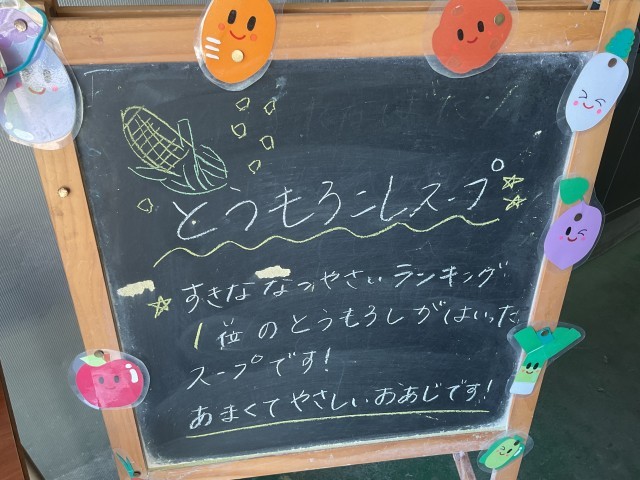 とうもろこしスープ
すきななつやさいランキング
1位のとうもろしがはいった
スープです!
あまくてやさしいおあじです!